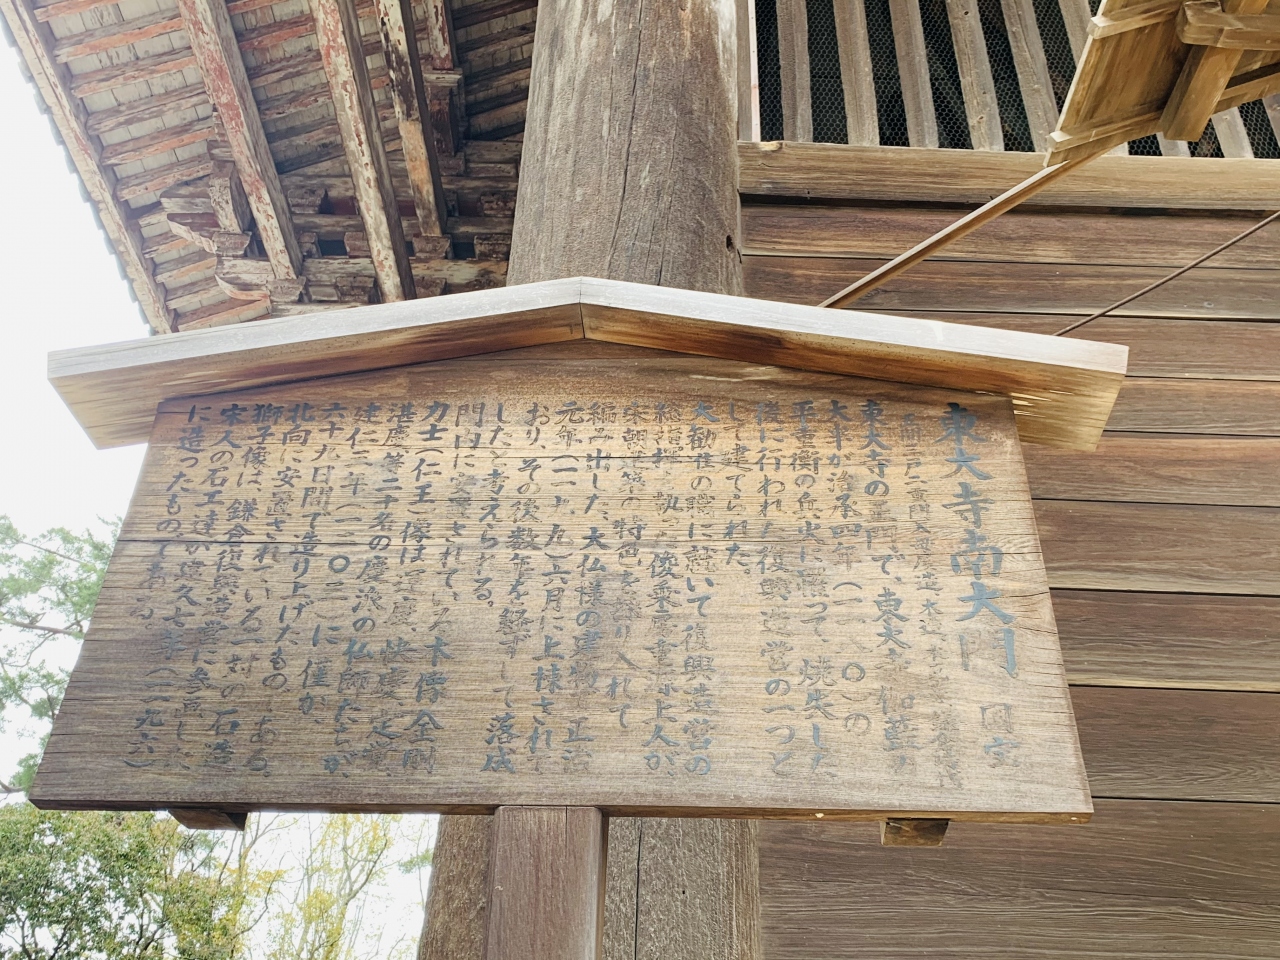 東大寺南大門 国宝
五間三戸二重門 入母屋造 本瓦葺
東大寺の正門で、東大寺伽藍の
大半が治承四年(一一八〇)の
平重衡の兵火に罹って焼失した
後に行われた復興造営の一つと
して建てられた。
大勧進の職に就いて復興造営の
総指揮を執った俊乗房重源上人が、
宋朝建築の特色を採り入れて
編み出した、大仏様の建物。正治
元年(一一九九)六月に上棟されて
おり、その後数年を経ずして落成
したと考えられる。
門内に安置されている木像金剛
力士(仁王)像は運慶、快慶、定覚、
湛慶等二十名の慶派の仏師たちが、
建仁三年(一二〇三)に僅か
六十九日間で造り上げたもの。
北向に安置されている一対の石造
獅子像は、鎌倉復興造営に参画した
宋人の石工達が建久七年(一一九六)
に造ったものである。